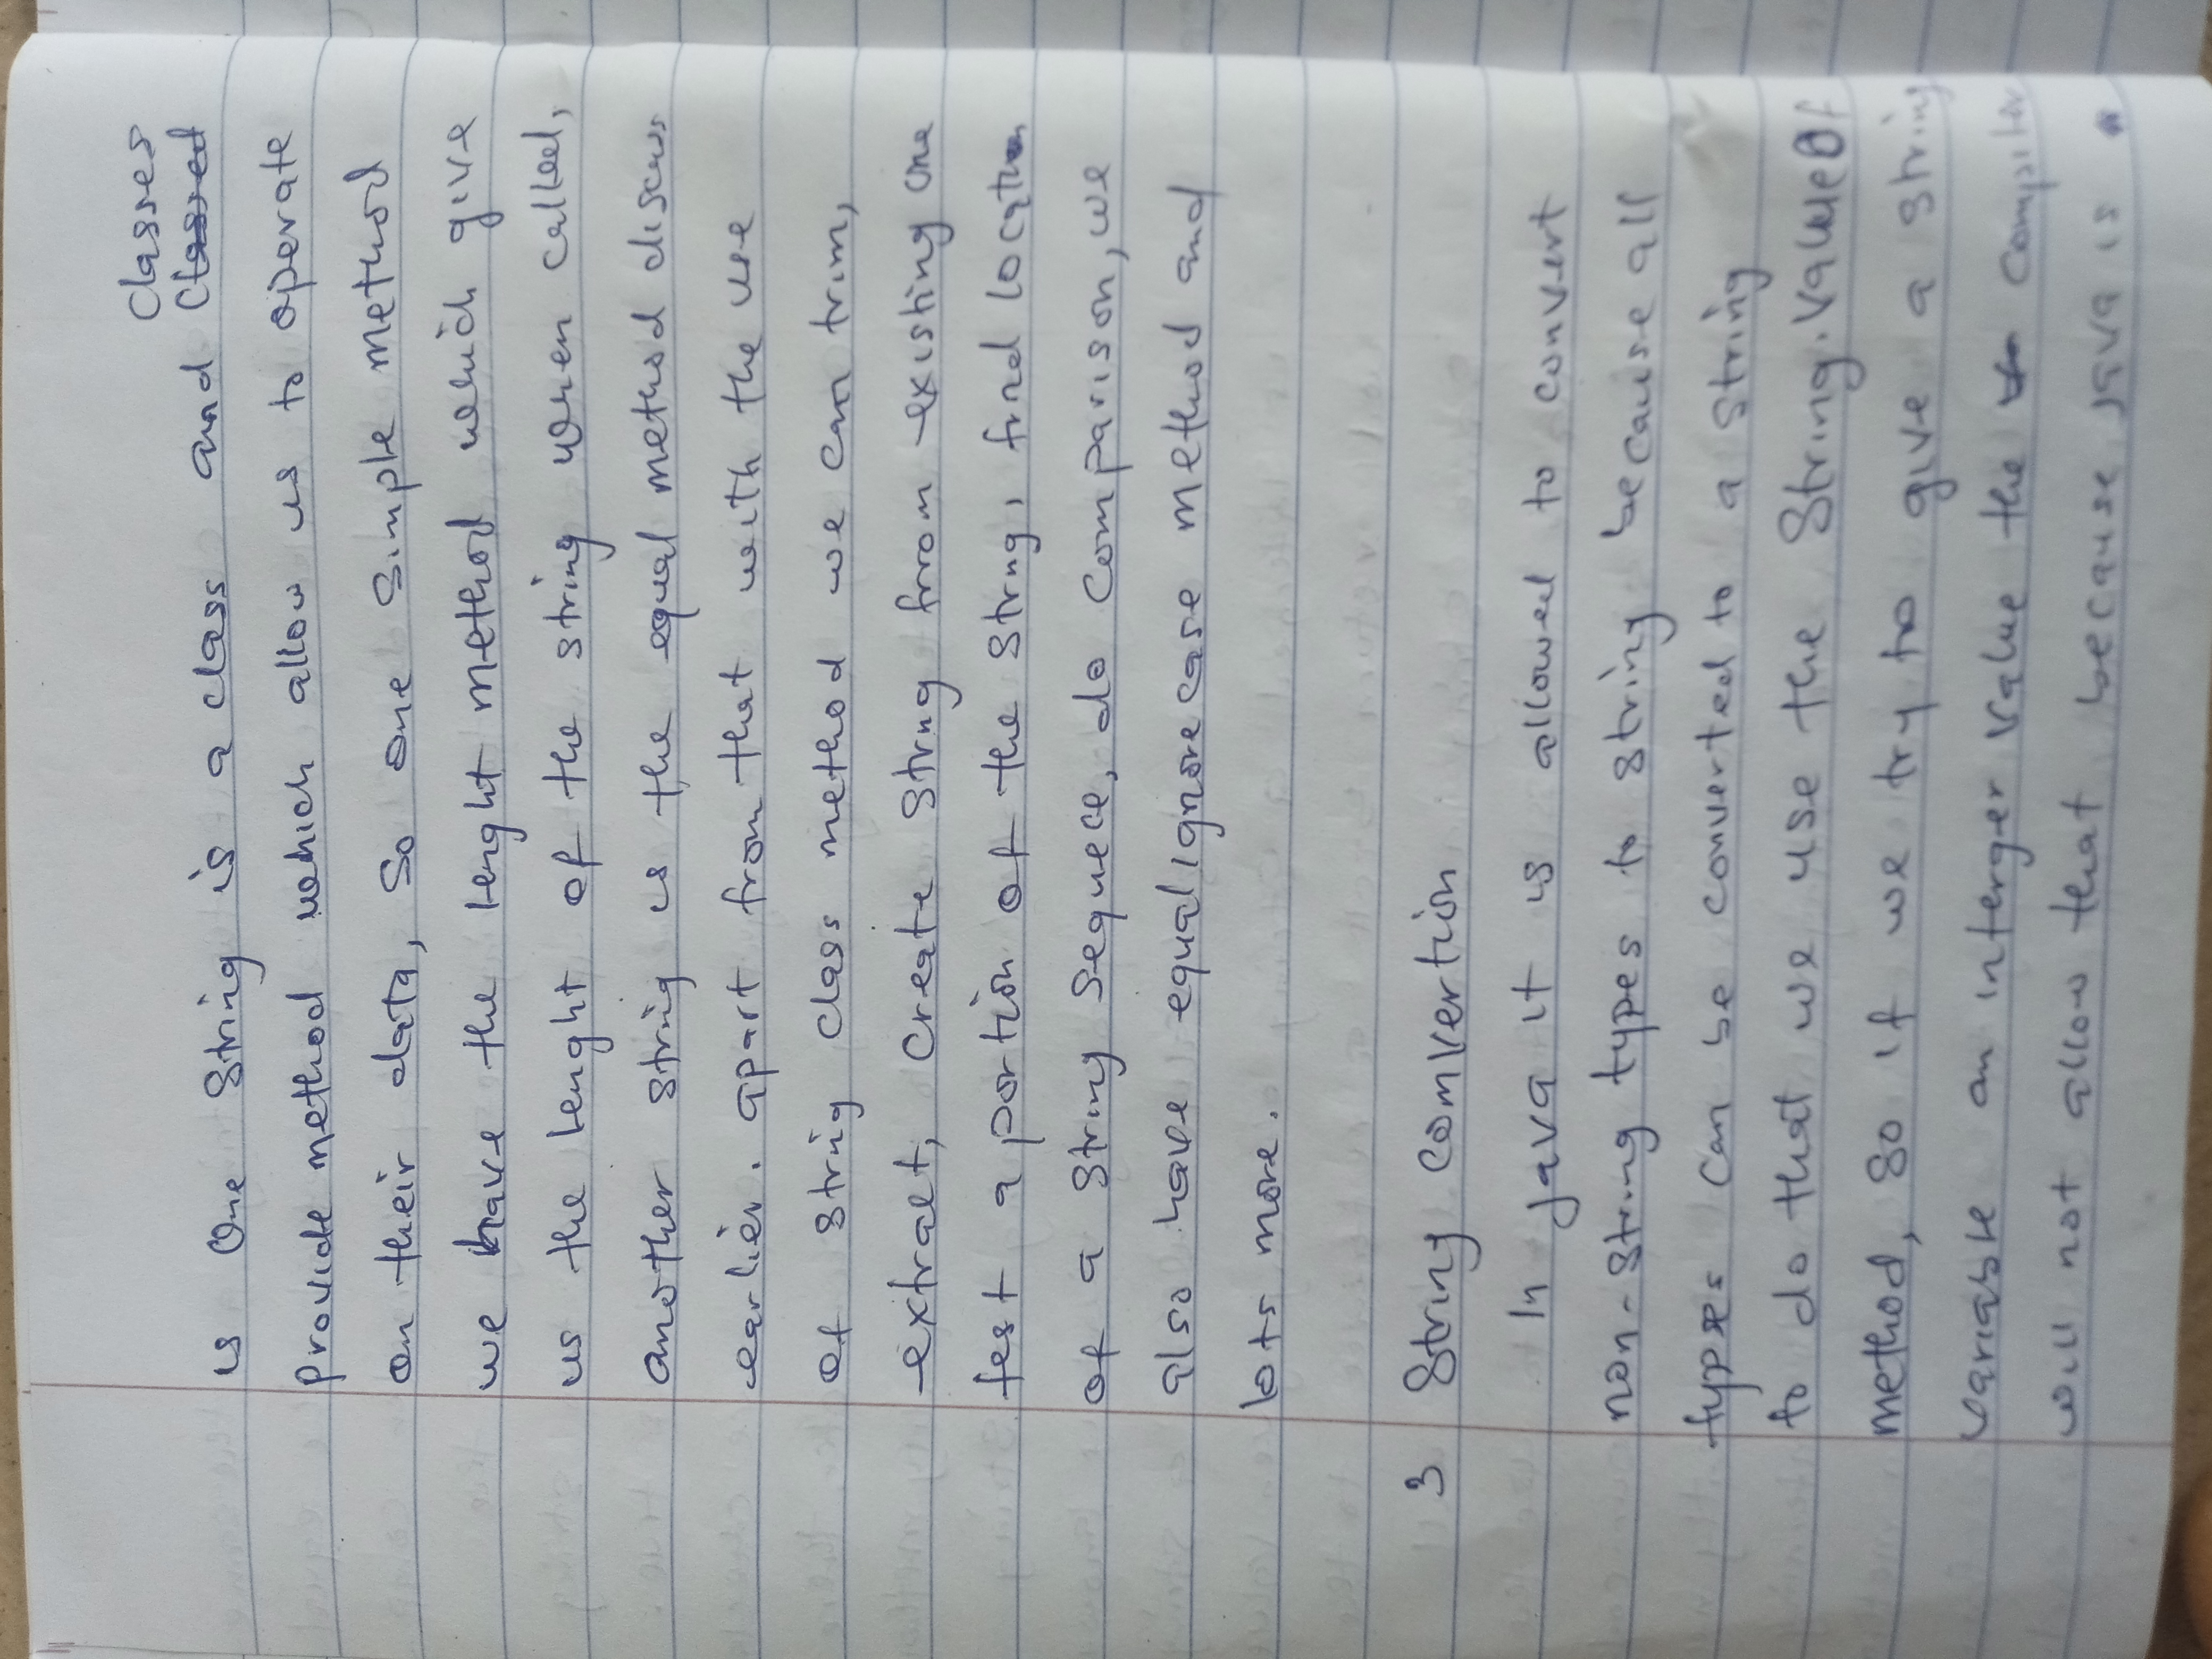 classes
is one string is a class and classed
provide method which allow us to operate
on their data, so one simple method
we have the lenght method which give
us the lenght of the string when called,
another string is the equal method discus
earlier. apart from that with the use
of string class method we can trim,
extract, create string from existing one
test a portion of the string, find location
of a string sequence, do comparison, we
also have equalignorecase method and
lots more.
3 String convertion
In java it is allowed to convert
non-string types to string because all
types can be converted to a string
to do that we use the String.valueOf
method, so if we try to give a string
variable an interger value the compiler
will not allow that because java is